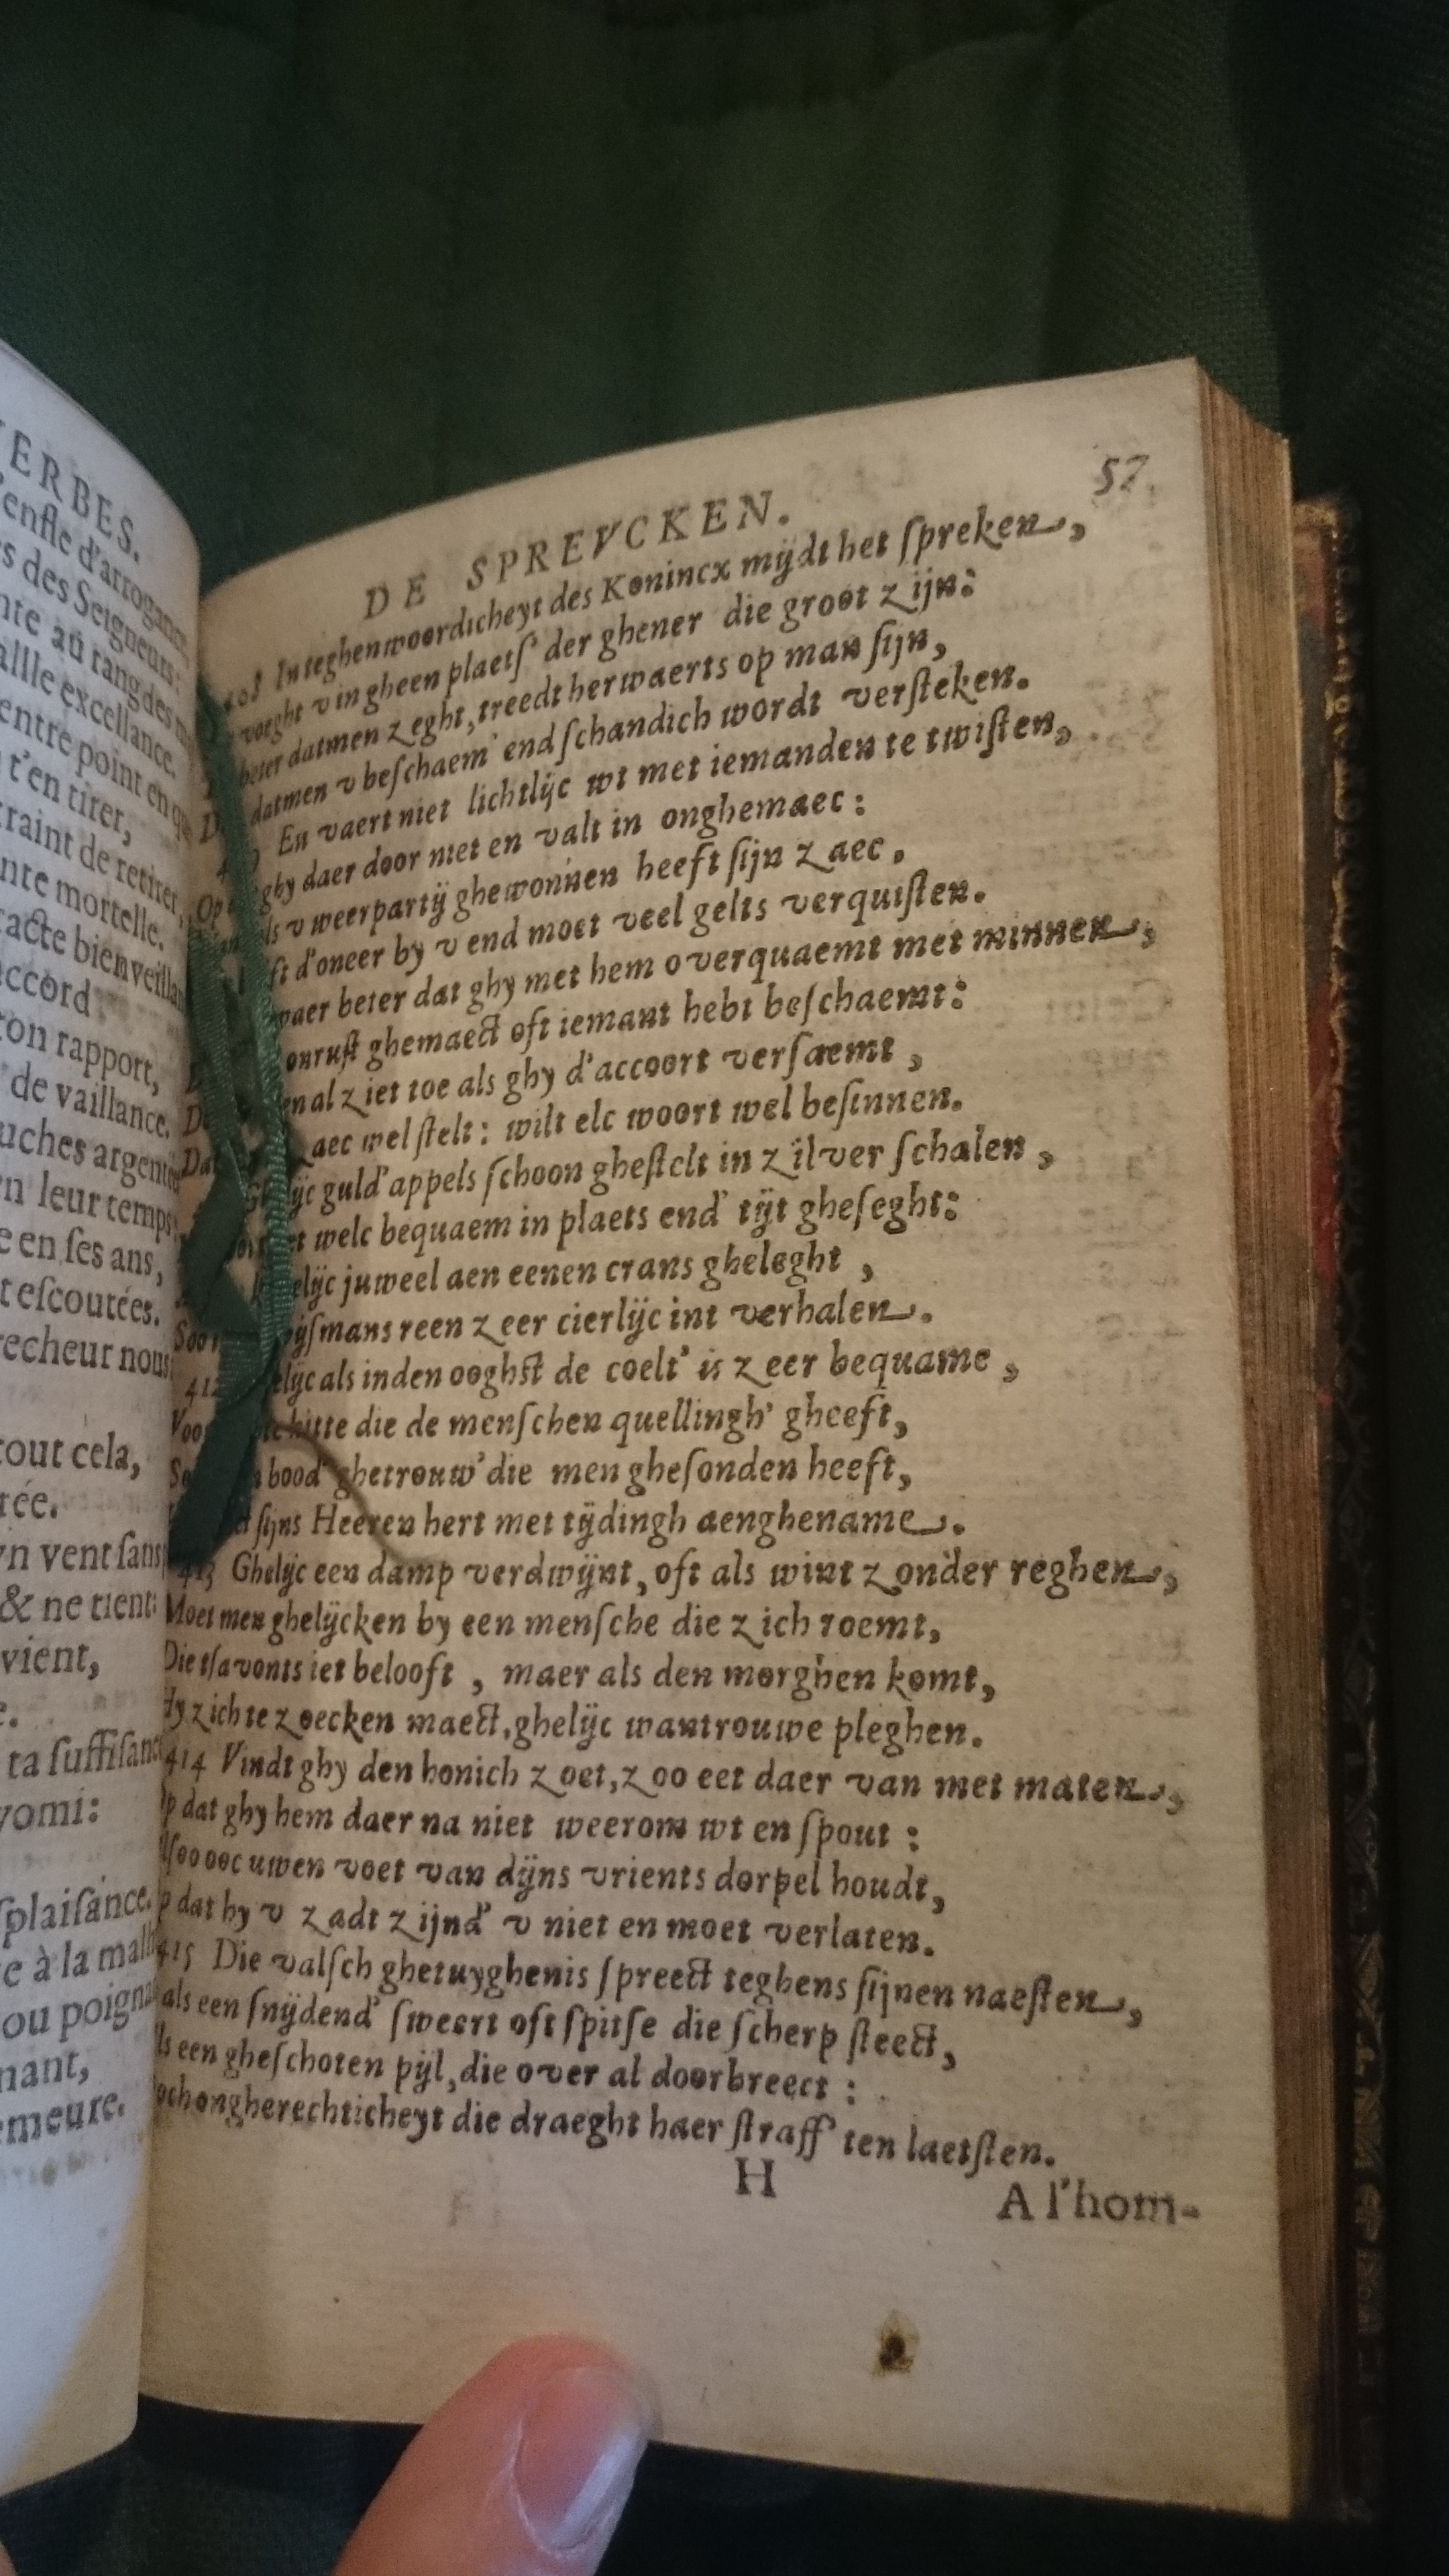 VERBES.
enfle d'arrogance,
s des Seigneurs:
nte au rang des
allle excellance.
entre point en
t'en tirer,
traint de retirer,
nte mortelle.
acte bienveillan
accord
ton rapport,
de vaillance.
uches argentée
n leur temps
e en ses ans,
t escoutées.
recheur nous
tout cela,
tée.
n vent sans
& ne tient
vient,
ta suffisanc
vomi:
splaisance.
e à la mall
ou poigna
nant,
emeure.
57
DE SPREVCKEN.
In teghenwoordicheyt des Konincx mijdt het ſpreken,
voeght v in gheen plaetſ' der ghener die groot zijn:
beter datmen zeght, treedt herwaerts op man ſijn,
datmen v beſchaem' end ſchandich wordt verſteken.
En vaert niet lichtlijc wt met iemanden te twiſten,
Op ghy daer door niet en valt in onghemaec:
als v weerpartij ghewonnen heeft ſijn zaec,
d'oneer by v end moet veel gelts verquiſten.
beter dat ghy met hem overquaemt met minnen,
onruſt ghemaect oft iemant hebt beſchaemt:
al ziet toe als ghy d'accoort verſaemt,
Dat zaec wel ſtelt: wilt elc woort wel beſinnen.
guld' appels ſchoon gheſtelt in zilver ſchalen,
welc bequaem in plaets end' tijt gheſeght:
juweel aen eenen crans gheleght,
Soo wijſmans reen zeer cierlijc int verhalen.
412 als inden ooghſt de coelt' is zeer bequame,
Voor hitte die de menſchen quellingh' gheeft,
bood' ghetrouw' die men gheſonden heeft,
ſijns Heeren hert met tijdingh aenghename.
413 Ghelijc een damp verdwijnt, oft als wint zonder reghen,
Moet men ghelijcken by een menſche die zich roemt,
Die tſavonts iet belooft, maer als den morghen komt,
Hy zich te zoecken maect, ghelijc wantrouwe pleghen.
414 Vindt ghy den honich zoet, zoo eet daer van met maten,
Op dat ghy hem daer na niet weerom wt en ſpout:
Alſoo ooc uwen voet van dijns vrients dorpel houdt,
Op dat hy v zadt zijnd' v niet en moet verlaten.
415 Die valſch ghetuyghenis ſpreect teghens ſijnen naeſten,
als een ſnijdend' ſweert oft ſpitſe die ſcherp ſteect,
Als een gheſchoten pijl, die over al doorbreect:
ongherechticheyt die draeght haer ſtraff' ten laetſten.
H
A l'hom-